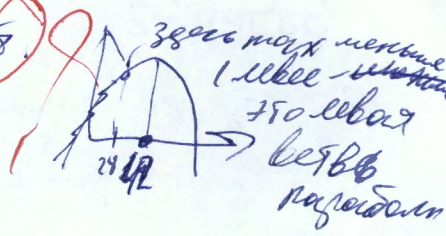 здесь max меньше
левее
это левая
ветвь
параболы
24 42